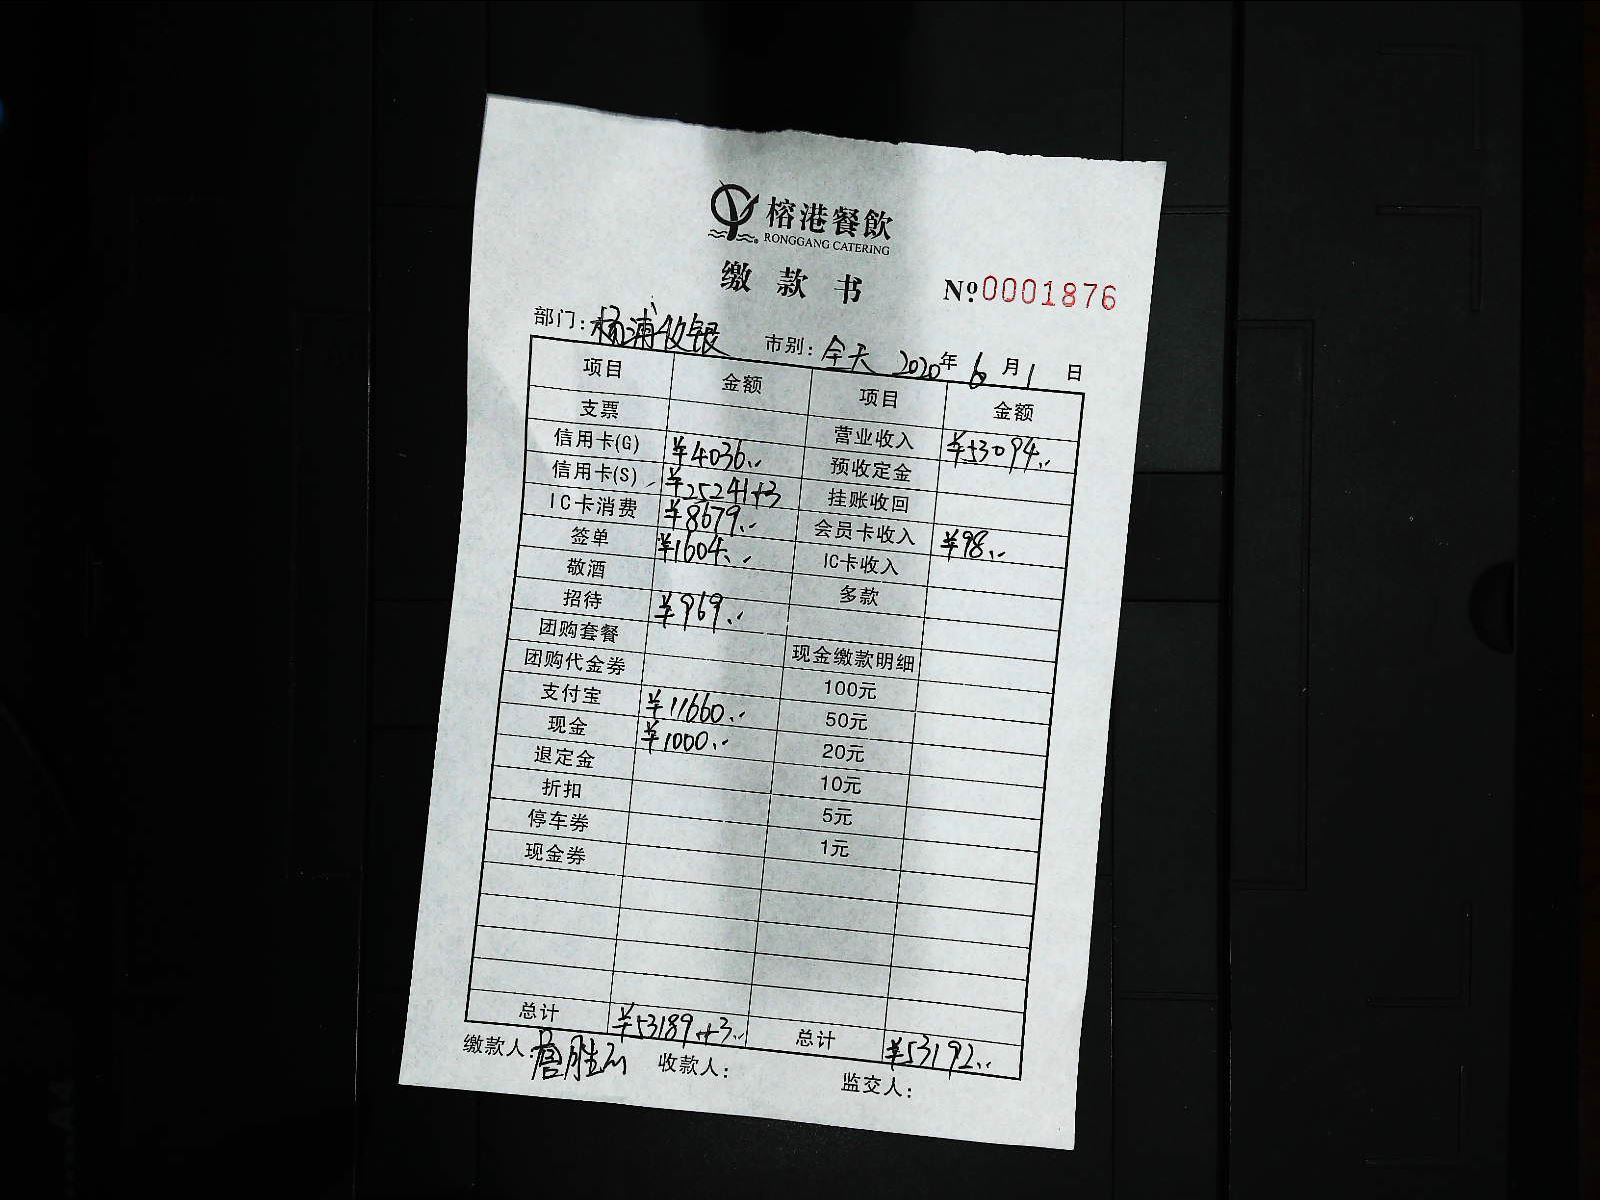 榕港餐飲
RONGGANG CATERING
缴款书
№0001876
部门：杨浦收银 市别：全天 2020年6月1日
项目 金额 项目 金额
支票 营业收入 ¥53094..
信用卡(G) ¥4036.. 预收定金
信用卡(S) ¥25241+3 挂账收回
IC卡消费 ¥8679.. 会员卡收入 ¥98..
签单 ¥1604.. IC卡收入
敬酒 多款
招待 ¥969..
团购套餐 现金缴款明细
团购代金券 100元
支付宝 ¥11660.. 50元
现金 ¥1000.. 20元
退定金 10元
折扣 5元
停车券 1元
现金券
总计 ¥53189+3.. 总计 ¥53192..
缴款人： 收款人： 监交人：